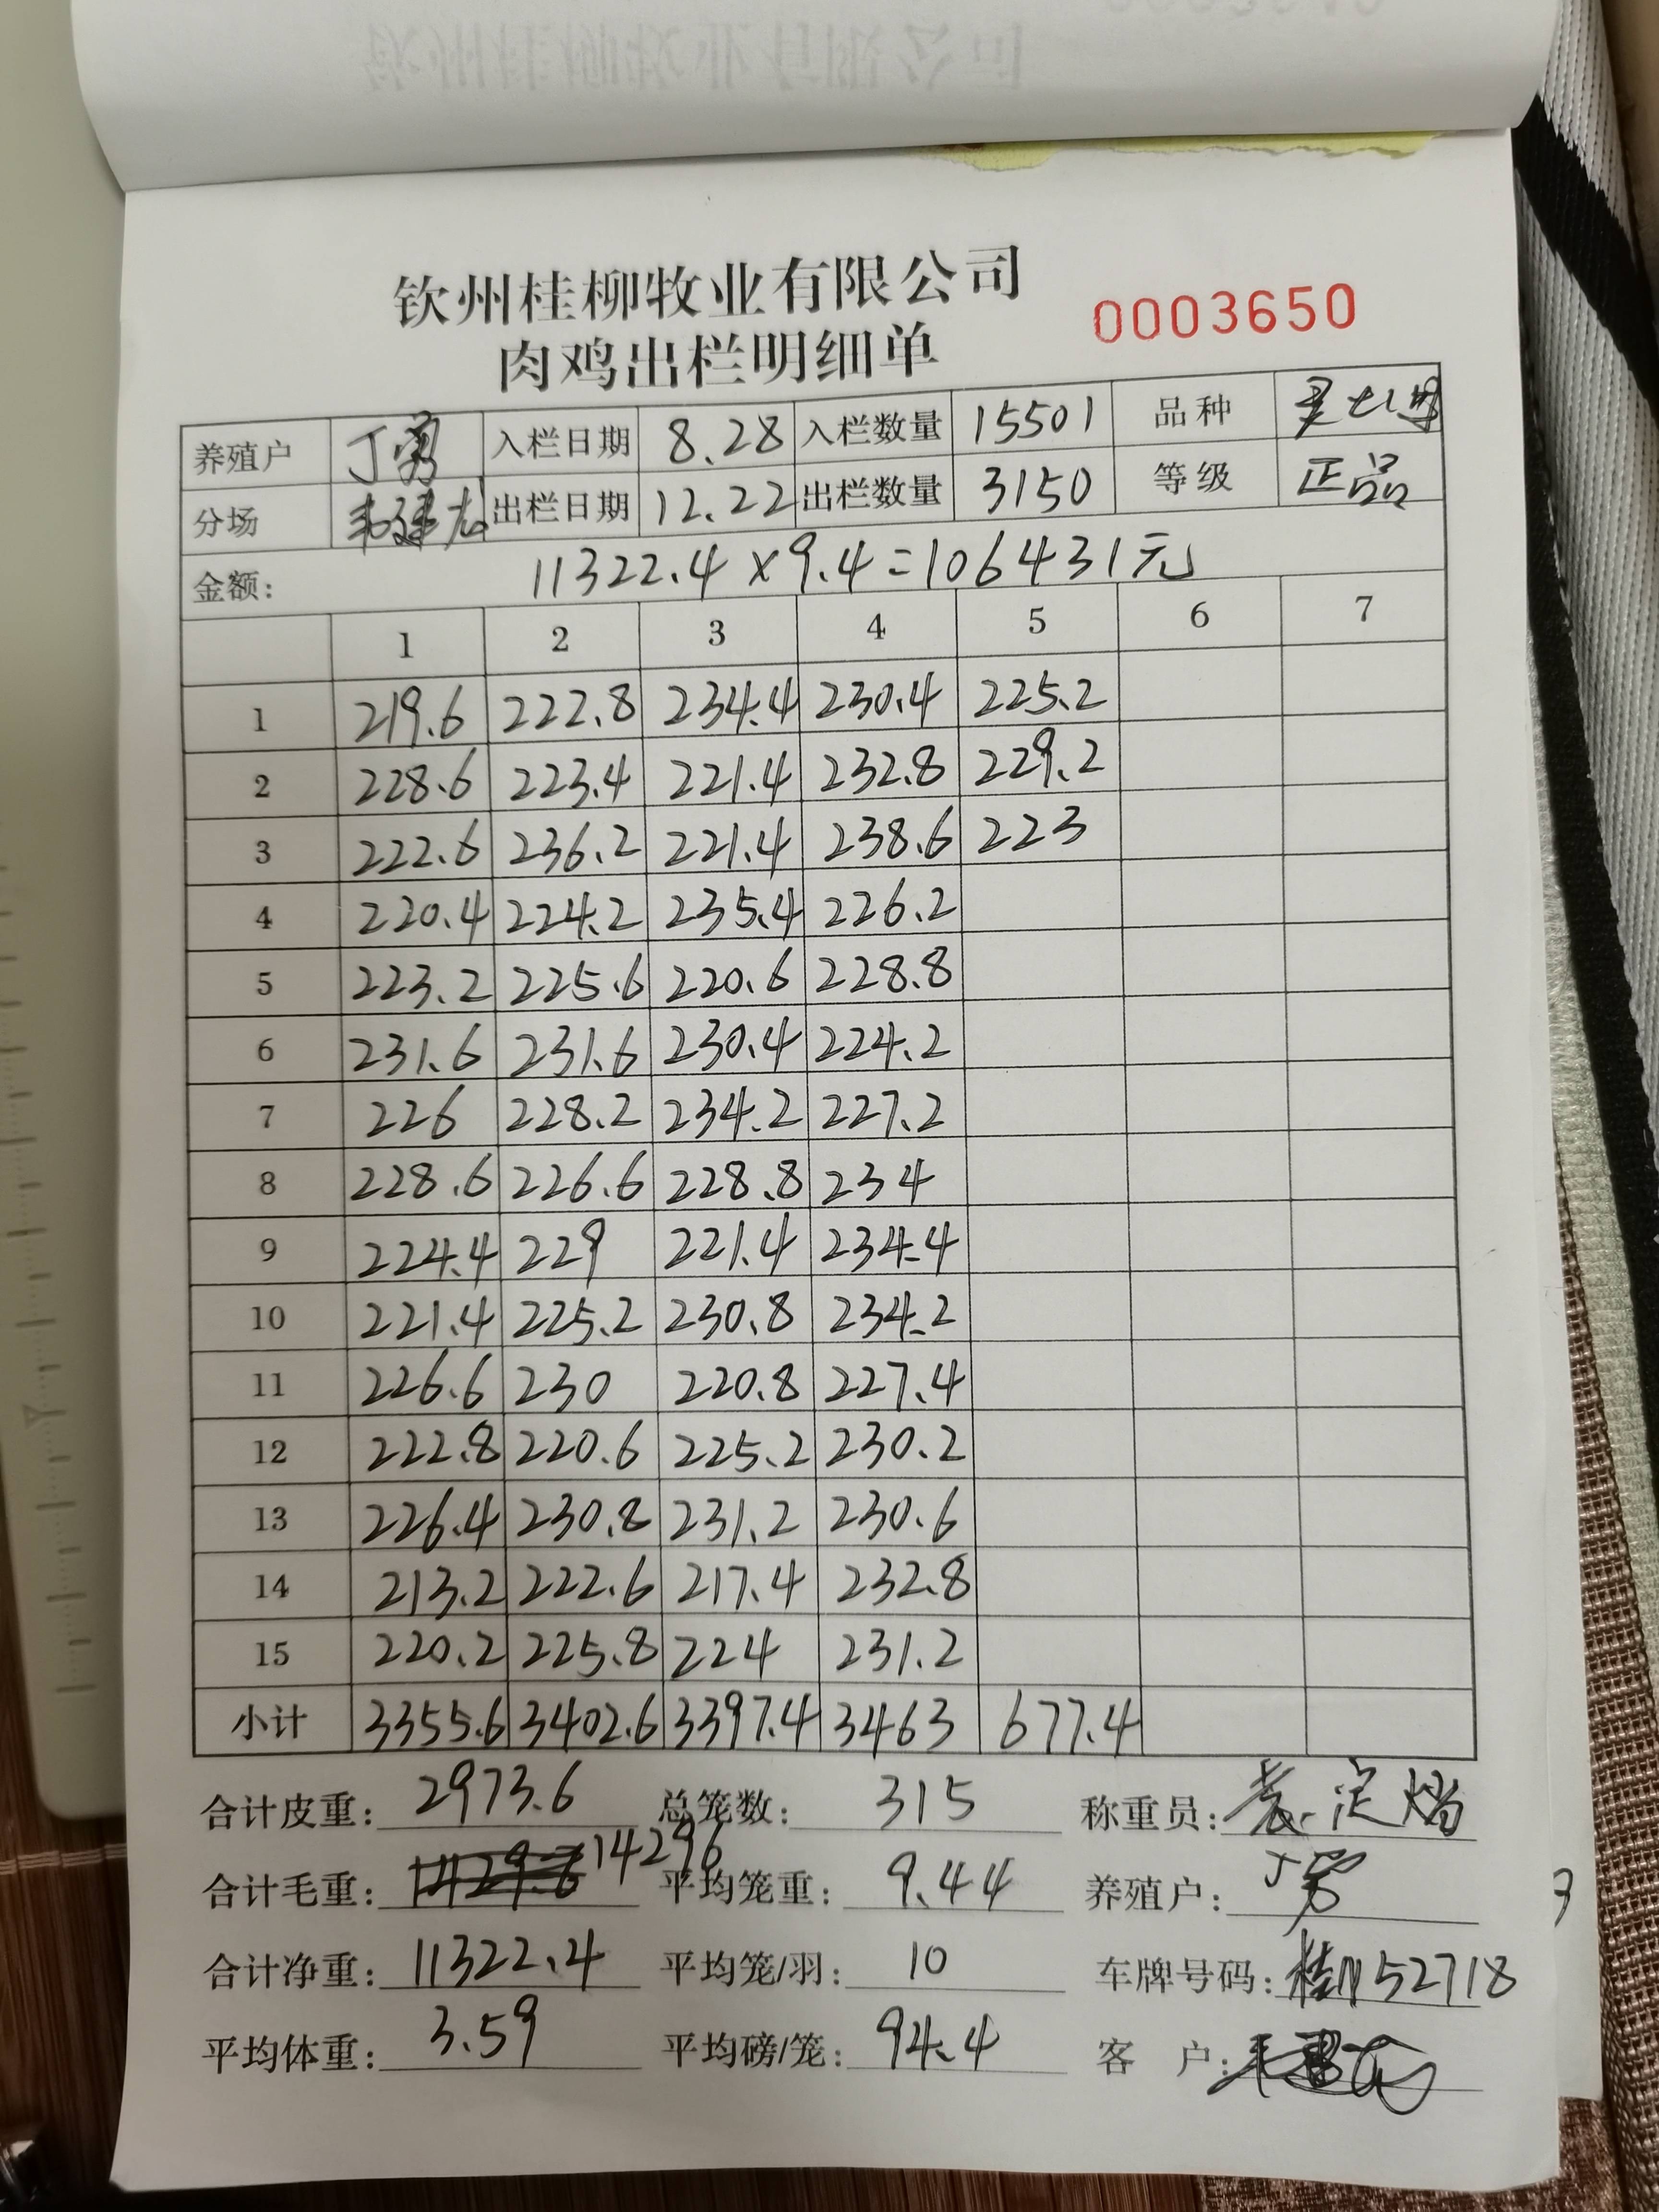 钦州桂柳牧业有限公司
肉鸡出栏明细单 0003650
养殖户 丁勇 入栏日期 8.28 入栏数量 15501 品种
分场 出栏日期 12.22 出栏数量 3150 等级 正品
金额: 11322.4×9.4=106431元
1 2 3 4 5 6 7
1 219.6 222.8 234.4 230.4 225.2
2 228.6 223.4 221.4 232.8 229.2
3 222.6 236.2 221.4 238.6 223
4 220.4 224.2 235.4 226.2
5 223.2 225.6 220.6 228.8
6 231.6 231.6 230.4 224.2
7 226 228.2 234.2 227.2
8 228.6 226.6 228.8 234
9 224.4 229 221.4 234.4
10 221.4 225.2 230.8 234.2
11 226.6 230 220.8 227.4
12 222.8 220.6 225.2 230.2
13 226.4 230.8 231.2 230.6
14 213.2 222.6 217.4 232.8
15 220.2 225.8 224 231.2
小计 3355.6 3402.6 3397.4 3463 677.4
合计皮重: 2973.6 总笼数: 315 称重员:
合计毛重: 14296 平均笼重: 9.44 养殖户: 丁勇
合计净重: 11322.4 平均笼/羽: 10 车牌号码: 桂N52718
平均体重: 3.59 平均磅/笼: 94.4 客户: